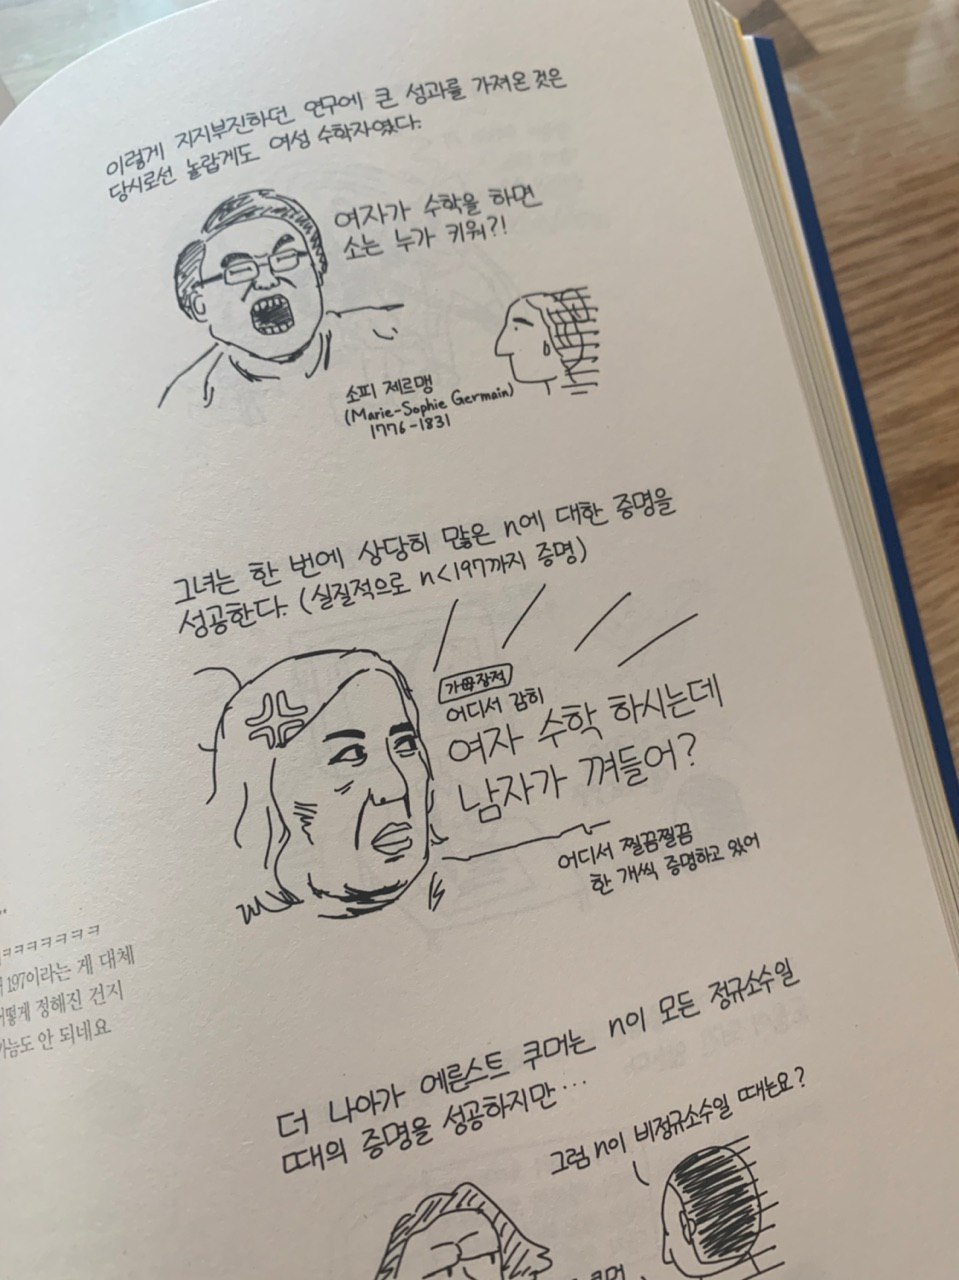 이렇게 지지부진하던 연구에 큰 성과를 가져온 것은
당시로선 놀랍게도 여성 수학자였다.
여자가 수학을 하면
소는 누가 키워?!
소피 제르맹
(Marie-Sophie Germain)
1776-1831
그녀는 한 번에 상당히 많은 n에 대한 증명을
성공한다. (실질적으로 n<197까지 증명)
가母장적
어디서 감히
여자 수학 하시는데
남자가 껴들어?
어디서 찔끔찔끔
한 개씩 증명하고 있어
ㅋㅋㅋㅋㅋㅋㅋ
197이라는 게 대체
어떻게 정해진 건지
가늠도 안 되네요
더 나아가 에른스트 쿠머는 n이 모든 정규소수일
때의 증명을 성공하지만…
그럼 n이 비정규소수일 때는요?
쿠머